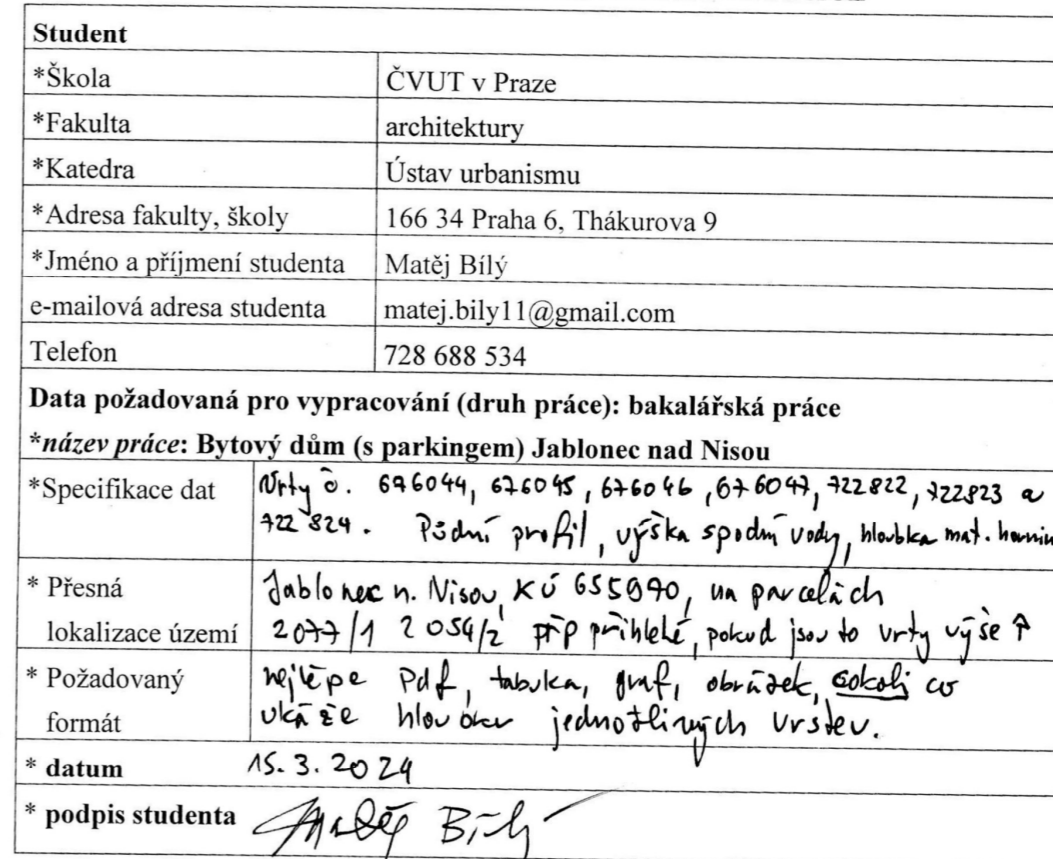 Student
*Škola ČVUT v Praze
*Fakulta architektury
*Katedra Ústav urbanismu
*Adresa fakulty, školy 166 34 Praha 6, Thákurova 9
*Jméno a příjmení studenta Matěj Bílý
e-mailová adresa studenta matej.bily11@gmail.com
Telefon 728 688 534
Data požadovaná pro vypracování (druh práce): bakalářská práce
*název práce: Bytový dům (s parkingem) Jablonec nad Nisou
*Specifikace dat Vrty č. 676044, 676045, 676046, 676047, 722822, 722823 a
722824. Půdní profil, výška spodní vody, hloubka mat. hornin
* Přesná Jablonec n. Nisou, KÚ 655970, na parcelách
lokalizace území 2077/1 2054/2 příp přihlehé, pokud jsou to vrty výše ↑
* Požadovaný nejlépe Pdf, tabulka, graf, obrázek, cokoli co
formát ukáže hloubku jednotlivých vrstev.
* datum 15. 3. 2024
* podpis studenta Matěj Bílý